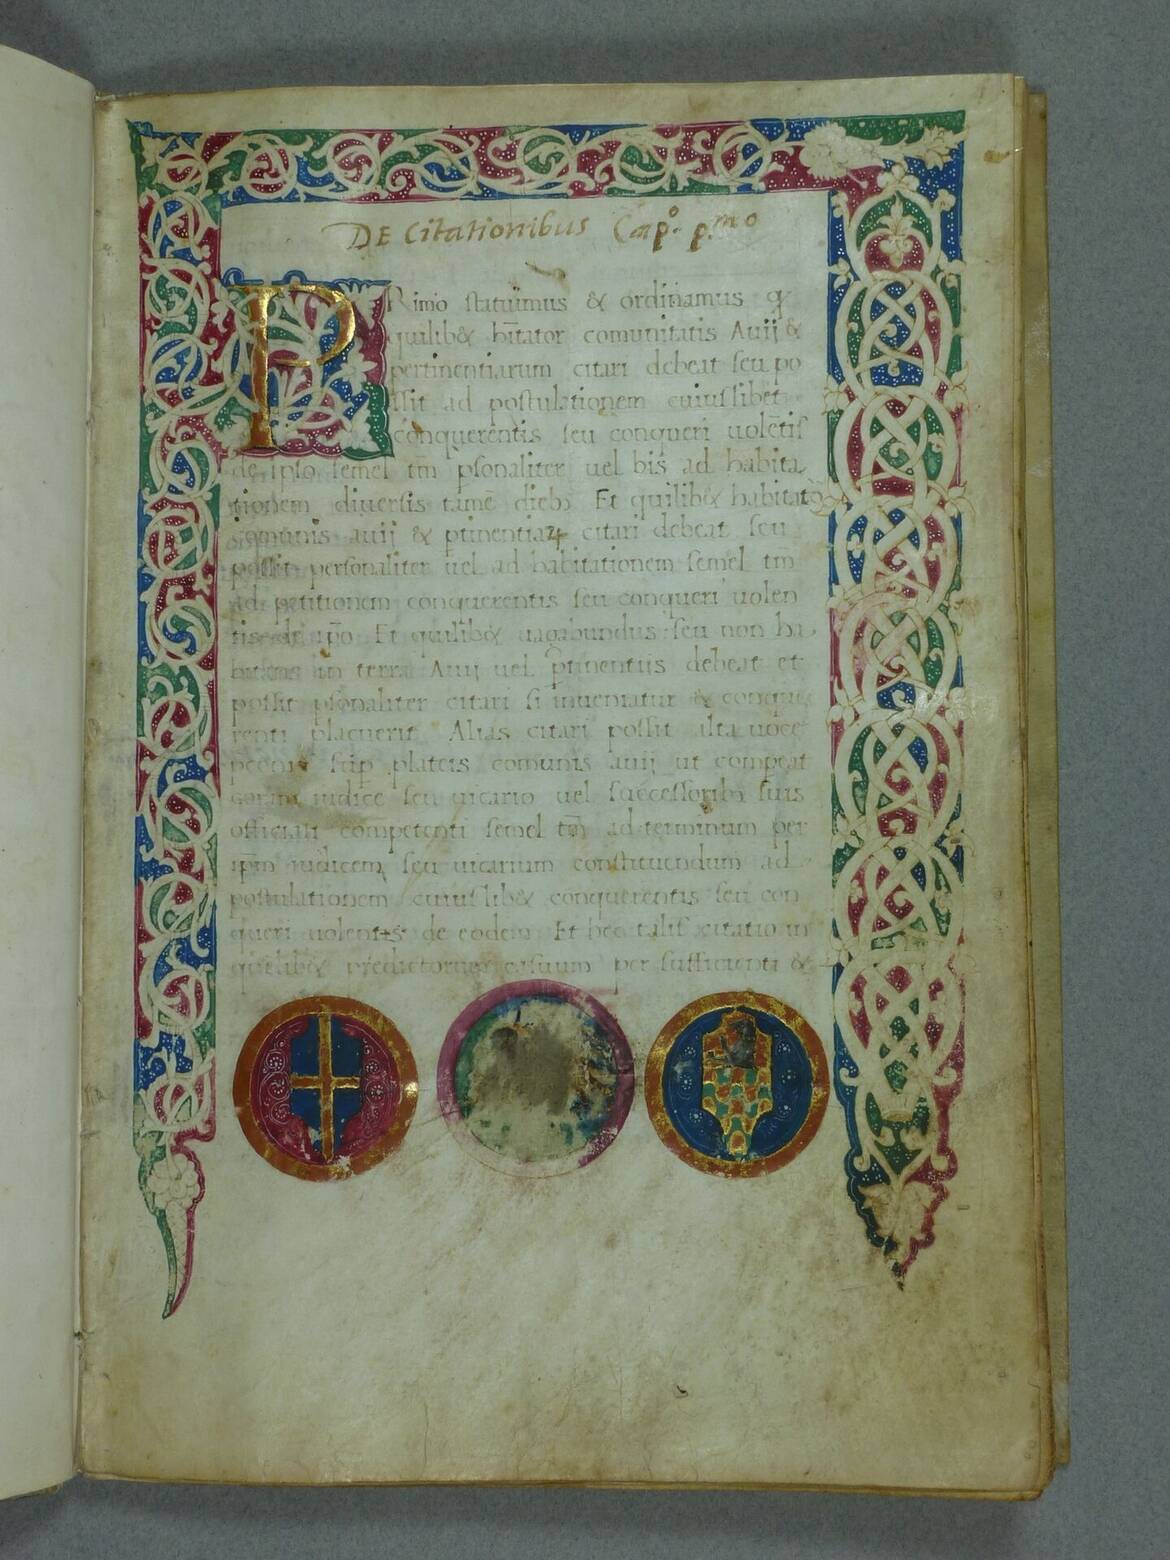 DE Citationibus Cap.º p.mo
PRimo statuimus & ordinamus q
quilib& hitator comunitatis Auij &
pertinentiarum citari debeat seu po
ssit ad postulationem cuiussibet
conquerentis seu conqueri uolētis
de ipso semel tm psonaliter uel bis ad habita
tionem diuersis tamē dieb Et quilib& habitator
comunis auij & ptinentiaꝝ citari debeat seu
possit personaliter uel ad habitationem semel tm
ad petitionem conquerentis seu conqueri uolen
tis de ipo Et quilib& uagabundus seu non ha
bitans in terra Auij uel ptinentiis debeat et
possit psonaliter citari si inueniatur & conque
renti placuerit Alias citari possit alta uoce
stip plateis comunis auij ut compeat
coram iudice seu uicario uel successorib suis
officiali competenti semel tm ad terminum per
ipm iudicem seu uicarium constituendum ad
postulationem cuiuslib& conquerentis seu con
queri uolentis de eodem Et hec talis citatio in
quolib& predictorum casuum per sufficienti &